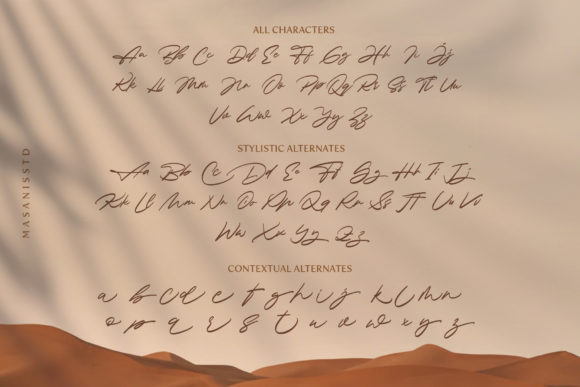 ALL CHARACTERS
Aa Bb Cc Dd Ee Ff Gg Hh Ii Jj
Kk Ll Mm Nn Oo Pp Qq Rr Ss Tt Uu
Vv Ww Xx Yy Zz
STYLISTIC ALTERNATES
Aa Bb Cc Dd Ee Ff Gg Hh Ii Jj
Kk Ll Mm Nn Oo Pp Qq Rr Ss Tt Uu Vv
Ww Xx Yy Zz
CONTEXTUAL ALTERNATES
a b c d e f g h i j k l m n
o p q r s t u v w x y z
MASANISSTD